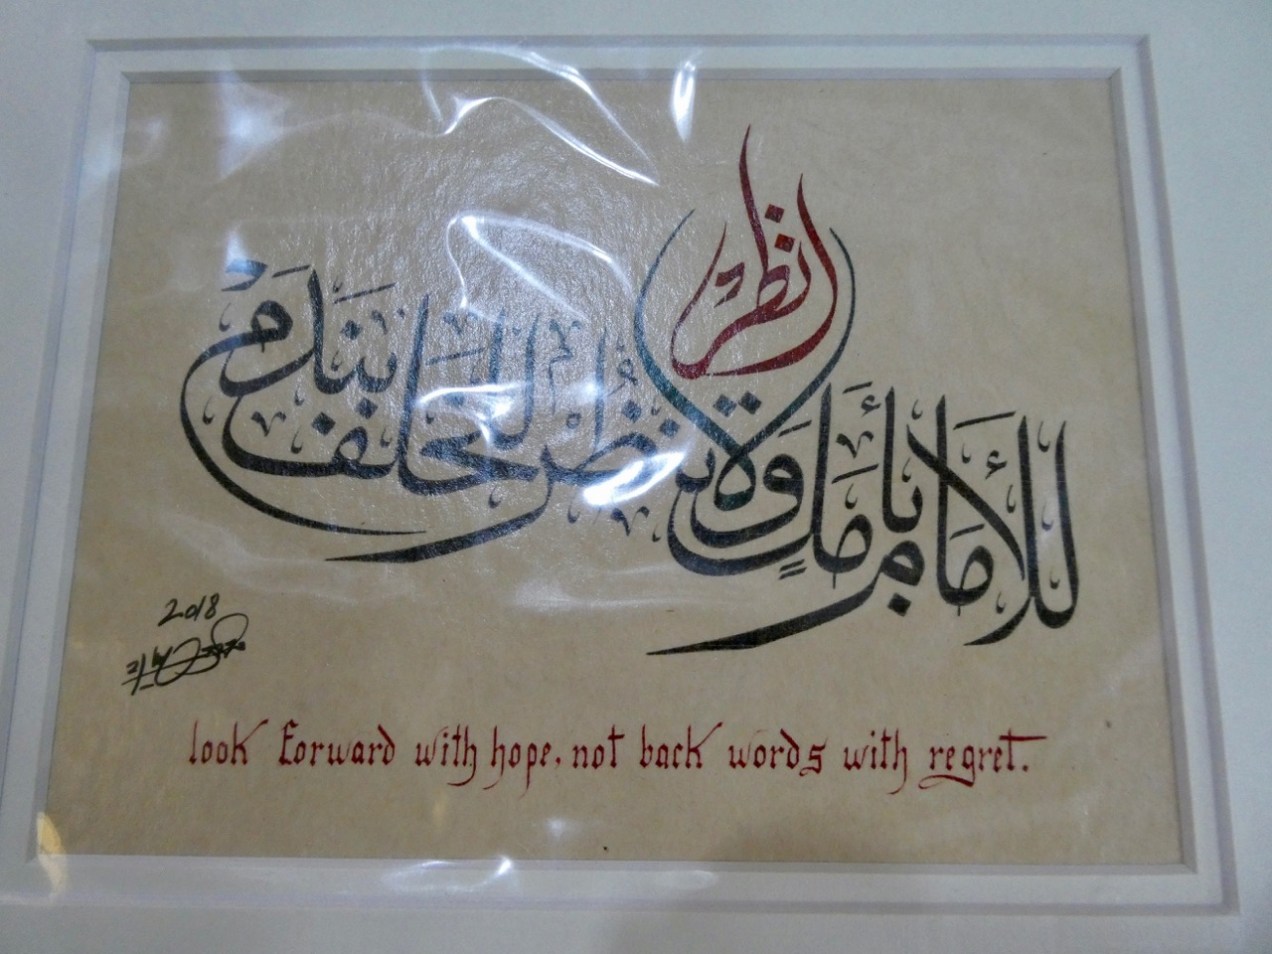 انظر
للأمام بأمل ولا تنظر للخلف بندم
2018
look forward with hope, not back words with regret.